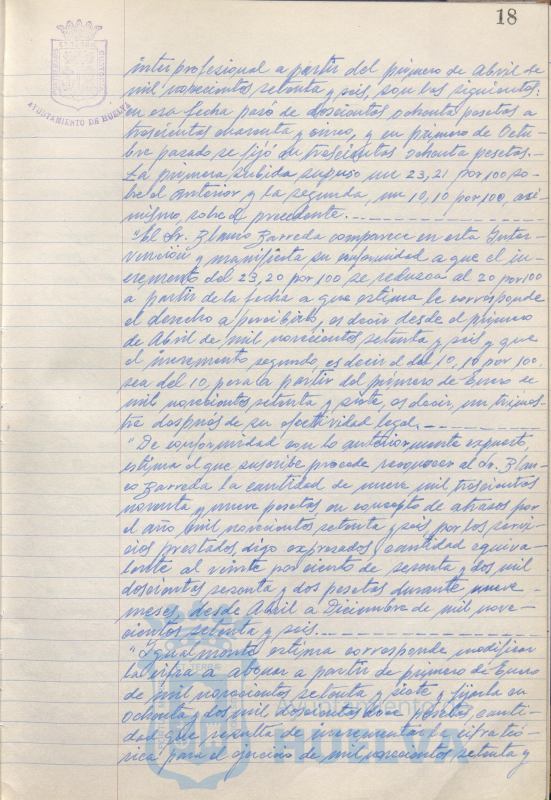 18
AYUNTAMIENTO DE HUELVA
interprofesional a partir del primero de Abril de
mil novecientos setenta y seis, son las siguientes:
en esa fecha pasó de doscientas ochenta pesetas a
trescientas cuarenta y cinco, y en primero de Octu-
bre pasado se fijó en trescientas ochenta pesetas.-
La primera subida supuso un 23,21 por 100 so-
bre el anterior y la segunda, un 10,10 por 100, asi-
mismo sobre el precedente.
"El Sr. Blanco Barreda comparece en esta Inter-
vención y manifiesta su conformidad a que el in-
cremento del 23,20 por 100 se reduzca al 20 por 100
a partir de la fecha a que estima le corresponde
el derecho a percibirlo, es decir desde el primero
de Abril de mil novecientos setenta y seis y que
el incremento segundo, es decir el del 10,10 por 100,
sea del 10, para a partir del primero de Enero de
mil novecientos setenta y siete, es decir, un trimes-
tre después de su efectividad legal.
"De conformidad con lo anteriormente expuesto,
estima el que suscribe procede reconocer al Sr. Blan-
co Barreda la cantidad de nueve mil trescientas
noventa y nueve pesetas en concepto de atrasos por
el año mil novecientos setenta y seis, por los servi-
cios prestados, digo expresados, cantidad equiva-
lente al veinte por ciento de sesenta y dos mil
doscientas sesenta y dos pesetas durante nueve
meses, desde Abril a Diciembre de mil nove-
cientos setenta y seis.
"Igualmente estima corresponde modificar
la cifra a abonar a partir de primero de Enero
de mil novecientos setenta y siete y fijarla en
ochenta y dos mil doscientas doce pesetas, canti-
dad que resulta de incrementar la cifra teó-
rica para el ejercicio de mil novecientos setenta y
Ayuntamiento de
HUELVA